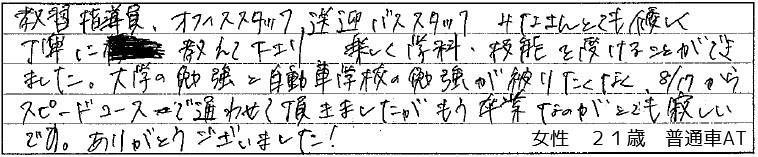 教習指導員、オフィススタッフ、送迎バススタッフ みなさんとても優しく
丁寧に 教えて下さり 楽しく学科・技能を受けることができ
ました。大学の勉強と自動車学校の勉強が被りたくなく、8/17から
スピードコースで通わせて頂きましたがもう卒業なのがとても寂しい
です。ありがとうございました！
女性 21歳 普通車AT